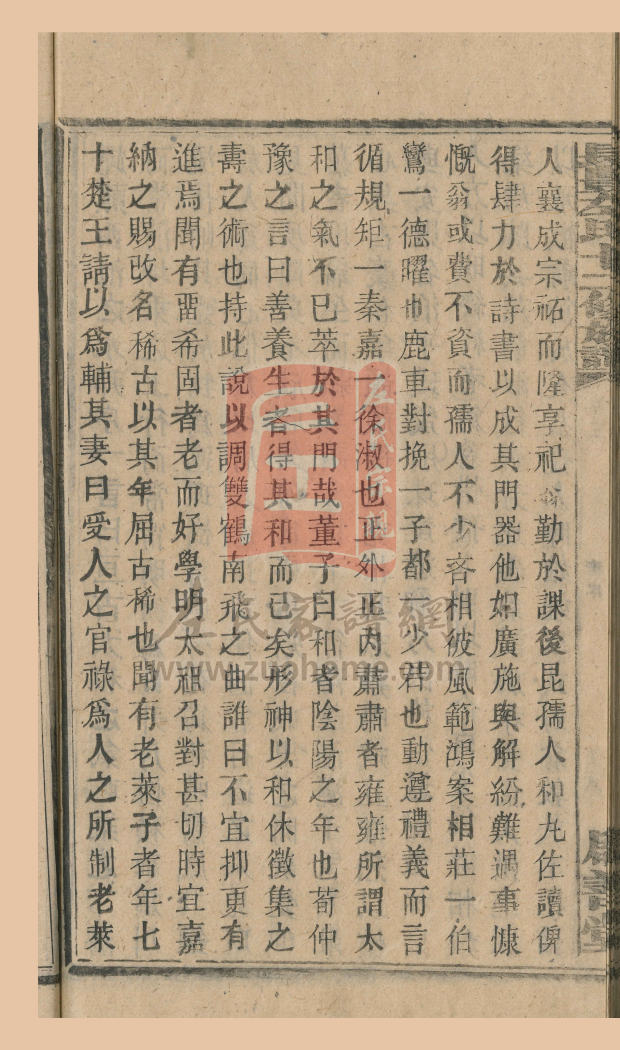 人襄成宗祏而隆享祀勤於課後昆孺人和丸佐讀俾
得肆力於詩書以成其門器他如廣施與解紛難遇事慷
慨翁或費不資而孺人不少吝相彼風範鴻案相莊一伯
鸞一德曜也鹿車對挽一子都一少君也動遵禮義而言
循規矩一秦嘉一徐淑也正外正內肅肅者雍雍所謂太
和之氣不已萃於其門哉董子曰和者陰陽之年也荀仲
豫之言曰善養生者得其和而已矣形神以和休徵集之
壽之術也持此說以調雙鶴南飛之曲誰曰不宜抑更有
進焉聞有畱希固者老而好學明太祖召對甚切時宜嘉
納之賜改名稀古以其年屆古稀也聞有老萊子者年七
十楚王請以爲輔其妻曰受人之官祿爲人之所制老萊
左氏家譜網
www.zuoheme.com